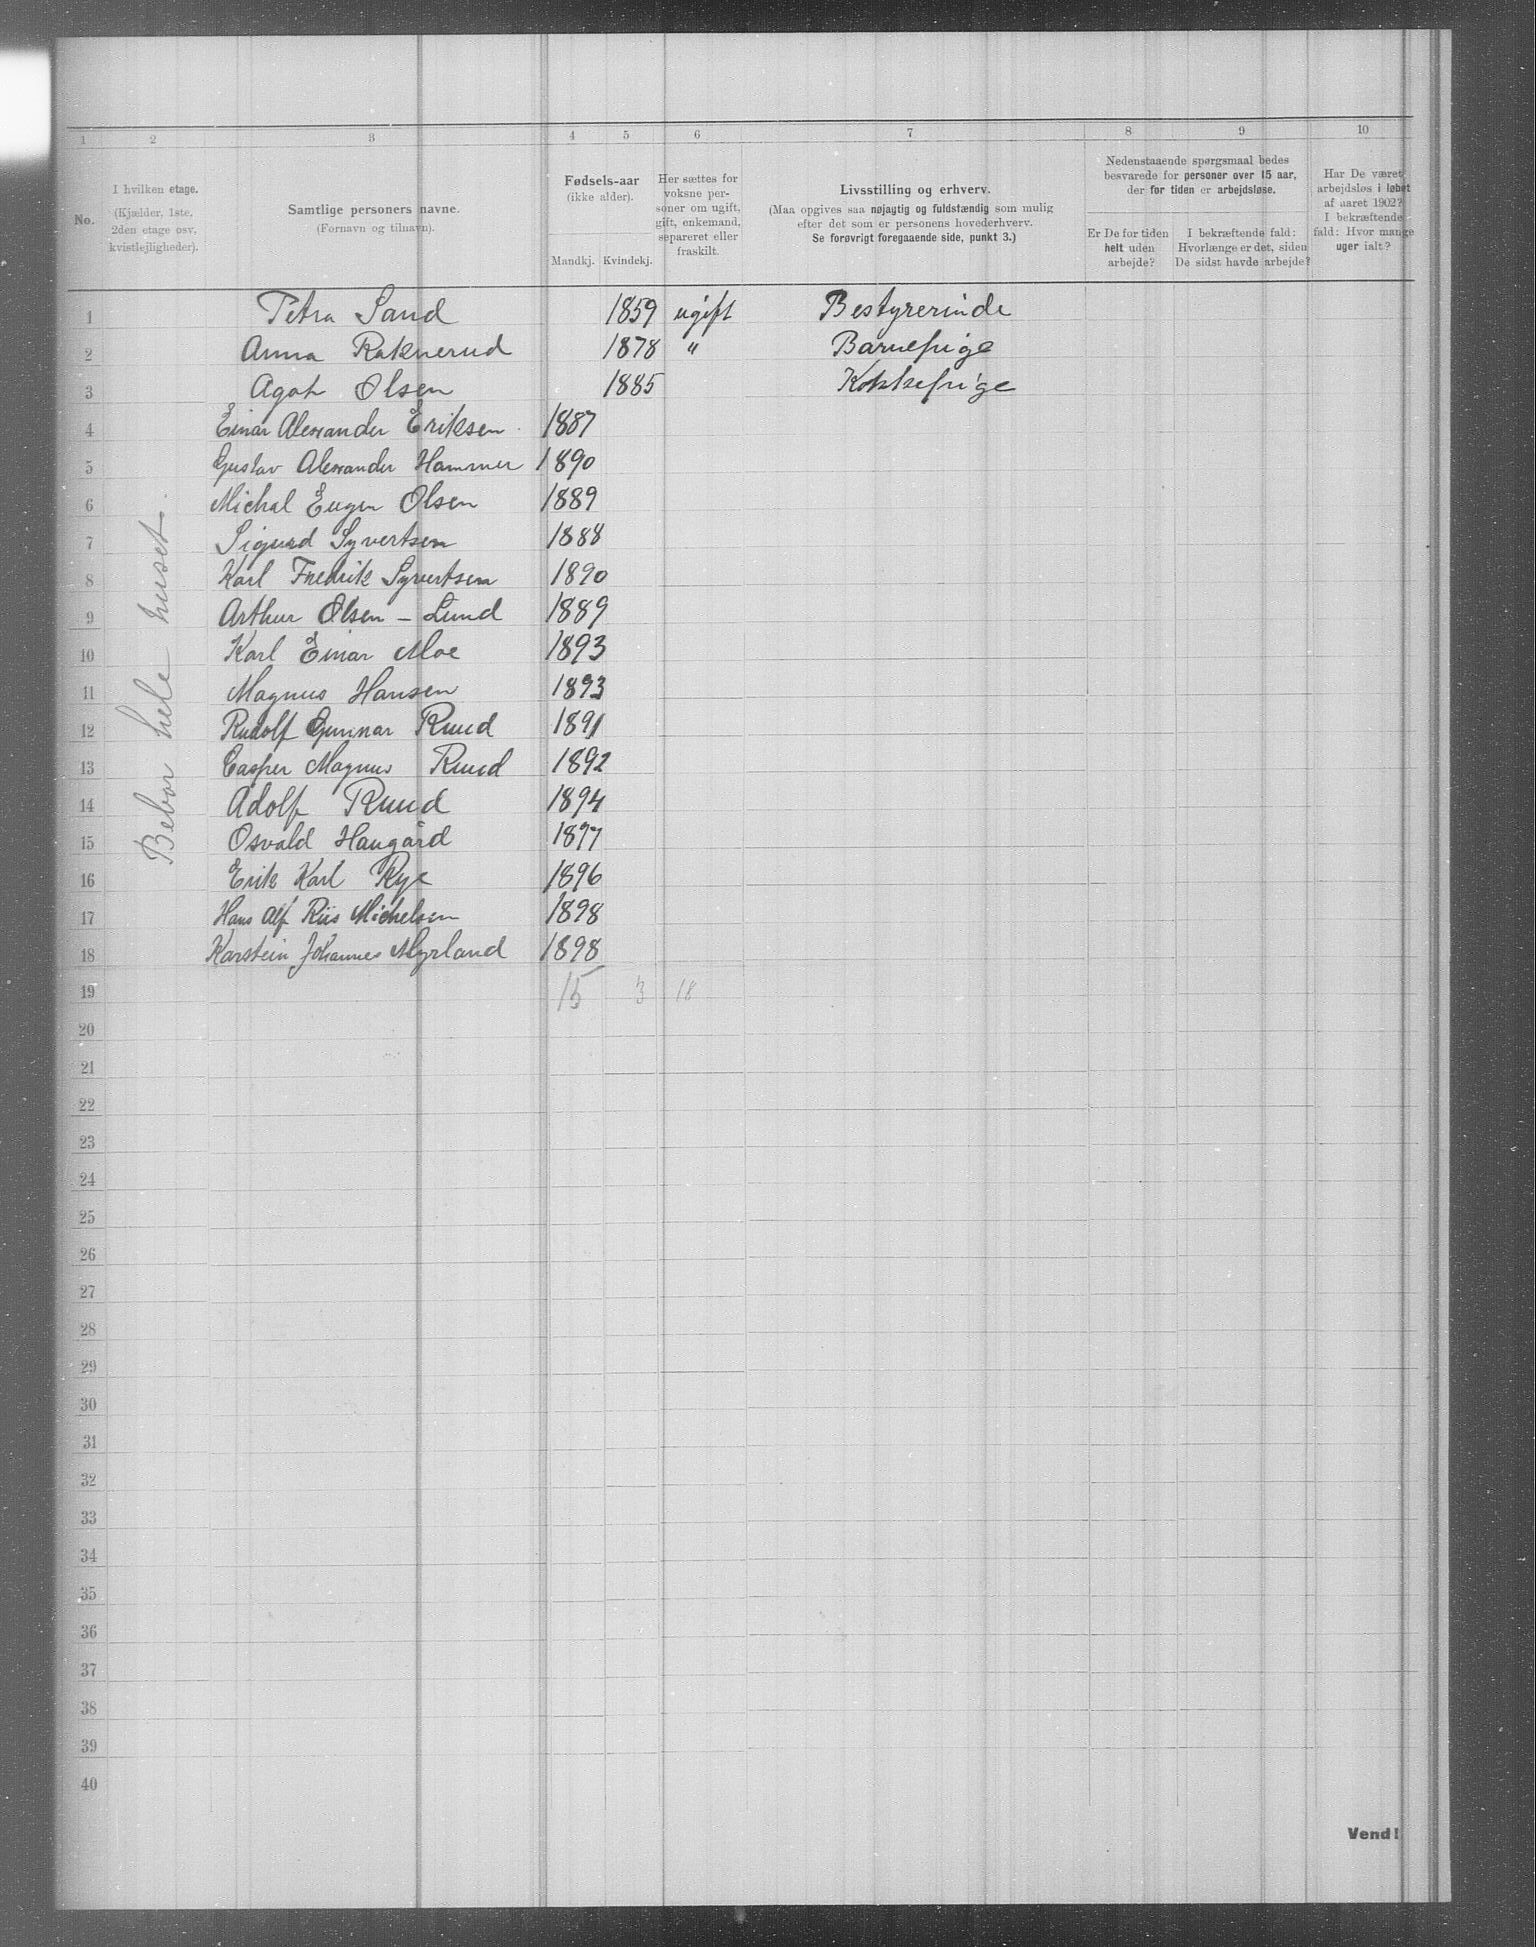 1 2 3 4 5 6 7 8 9 10
No.
I hvilken etage.
(Kjælder, 1ste,
2den etage osv.
kvistlejligheder).
Samtlige personers navne.
(Fornavn og tilnavn).
Fødsels-aar
(ikke alder).
Mandkj. Kvindekj.
Her sættes for
voksne per-
soner om ugift,
gift, enkemand,
separeret eller
fraskilt.
Livsstilling og erhverv.
(Maa opgives saa nøjagtig og fuldstændig som mulig
efter det som er personens hovederhverv.
Se forøvrigt foregaaende side, punkt 3.)
Nedenstaaende spørgsmaal bedes
besvarede for personer over 15 aar,
der for tiden er arbejdsløse.
Er De for tiden
helt uden
arbejde?
I bekræftende fald:
Hvorlænge er det, siden
De sidst havde arbejde?
Har De været
arbejdsløs i løbet
af aaret 1902?
I bekræftende
fald: Hvor mange
uger ialt?
Bebor hele huset.
1 Petra Sand 1859 ugift Bestyrerinde
2 Anna Raknerud 1878 " Barnepige
3 Agot Olsen 1885 Kokkepige
4 Einar Alexander Eriksen 1887
5 Gustav Alexander Hammer 1890
6 Michal Eugen Olsen 1889
7 Sigurd Syvertsen 1888
8 Karl Fredrik Syvertsen 1890
9 Arthur Olsen - Lund 1889
10 Karl Einar Moe 1893
11 Magnus Hansen 1893
12 Rudolf Gunnar Ruud 1891
13 Casper Magnus Ruud 1892
14 Adolf Ruud 1894
15 Osvald Haugård 1897
16 Erik Karl Rye 1896
17 Hans Alf Riis Michelsen 1898
18 Karstein Johannes Myrland 1898
19 15 3 18
20
21
22
23
24
25
26
27
28
29
30
31
32
33
34
35
36
37
38
39
40
Vend!